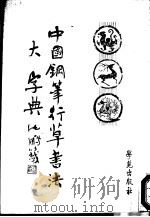 中國鋼筆行草書法
大字典
學苑出版社